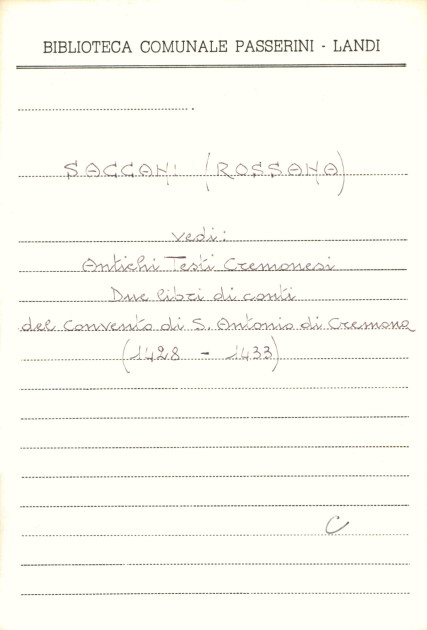 BIBLIOTECA COMUNALE PASSERINI - LANDI
SACCANI (ROSSANA)
vedi:
Antichi Testi Cremonesi
Due libri di conti
del convento di S. Antonio di Cremona
(1428 - 1433)
C